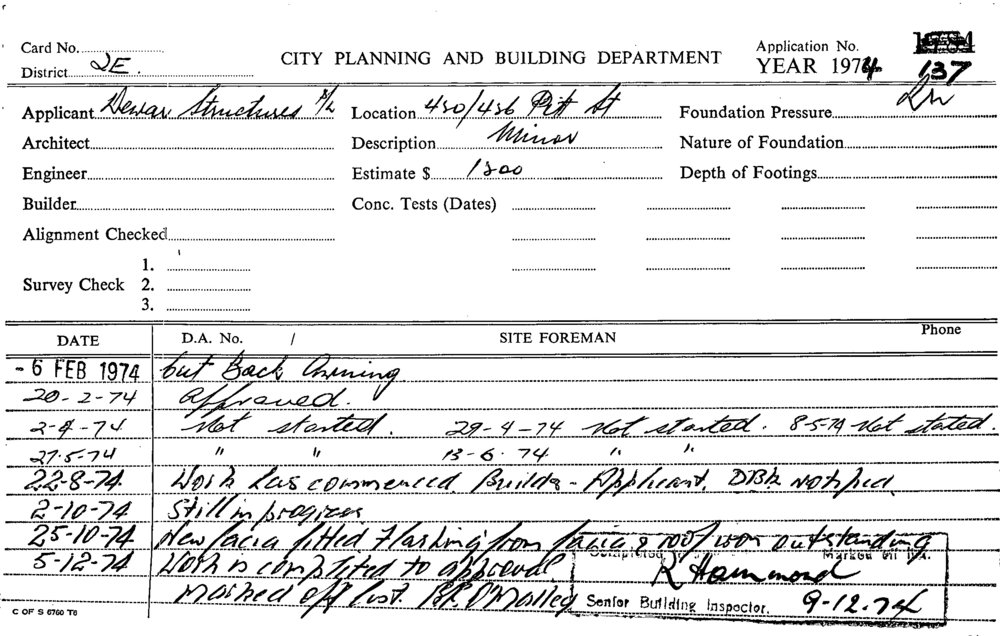 Card No.
District 2E.
CITY PLANNING AND BUILDING DEPARTMENT
Application No.
YEAR 1974 137
Applicant Dewar Structures P/L Location 450/456 Pitt St Foundation Pressure
Architect Description Minor Nature of Foundation
Engineer Estimate $ 1800 Depth of Footings
Builder Conc. Tests (Dates)
Alignment Checked
1.
Survey Check 2.
3.
DATE D.A. No. / SITE FOREMAN Phone
- 6 FEB 1974 Cut Back Awning
20-2-74 Approved.
2-4-74 Not started. 29-4-74 Not started. 8-5-74 Not stated.
27-5-74 " " 13-6-74 " "
22-8-74 Work has commenced. Builder - Applicant. notified
2-10-74 Still in progress
25-10-74 New facia fitted Flashing from facia & roof outstanding
5-12-74 Work is completed to approval Completed Marked off
Marked off list. O'Malley K Hammond
Senior Building Inspector. 9-12-74
C OF S 6760 T6